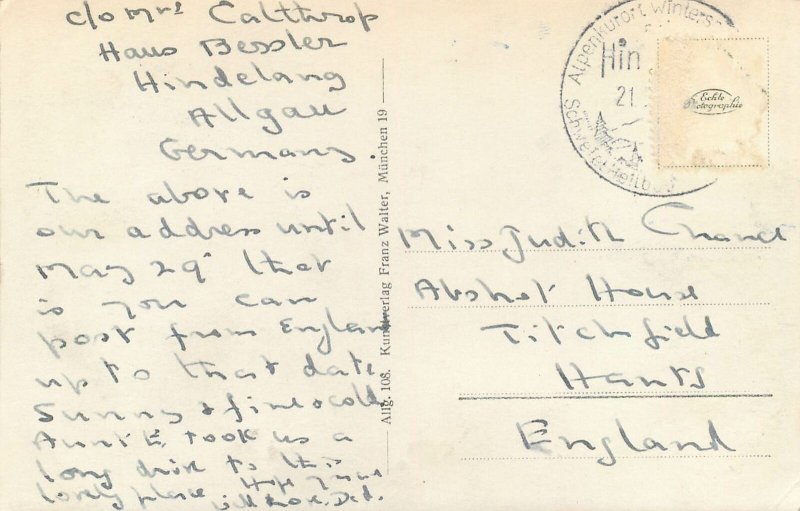 c/o Mrs Calthrop
Haus Bessler
Hindelang
Allgau
Germany.
The above is
our address until
May 29th that
is you can
post from England
up to that date
Sunny & fine & cold
Aunt E. took us a
long drive to this
lovely place Hope
will love. Dad.
Allg. 108. Kunstverlag Franz Walter, München 19
Alpenkurort Winters
Hin
21
Schwefel Heilbad
Echte
Photographie
Miss Judith Chance
Abshot House
Titchfield
Hants
England